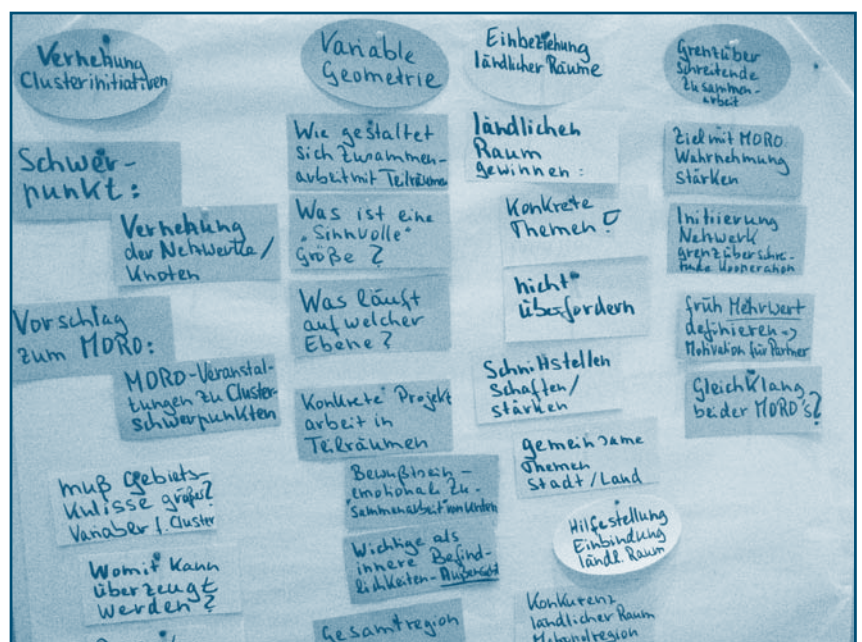 Vernetzung
Clusterinitiativen
Schwer-
punkt:
Vernetzung
der Netzwerke/
Knoten
Vorschlag
zum MORO:
MORO-Veranstal-
tungen zu Cluster-
schwerpunkten
muß Gebiets-
Kulisse größer?
Variabler f. Cluster
Womit kann
überzeugt
werden?
Variable
Geometrie
Wie gestaltet
sich Zusammen-
arbeit mit Teilräumen
Was ist eine
"Sinnvolle"
Größe?
Was läuft
auf welcher
Ebene?
Konkrete Projekt
arbeit in
Teilräumen
Bewußtsein -
emotionale Zu-
sammenarbeit von unten
Wichtige als
innere Befind-
lichkeiten-
Gesamtregion
Einbeziehung
ländlicher Räume
ländlichen
Raum
gewinnen:
Konkrete
Themen!
nicht
überfordern
Schnittstellen
schaffen/
stärken
gemeinsame
Themen
Stadt/Land
Hilfestellung
Einbindung
ländl. Raum
Konkurenz
ländlicher Raum
Metropolregion
Grenzüber
schreitende
Zusammen-
arbeit
Ziel mit MORO:
Wahrnehmung
stärken
Initiierung
Netzwerk
grenzüberschrei-
tende Kooperation
früh Mehrwert
definieren =>
Motivation für Partner
Gleichklang
beider MORO's?